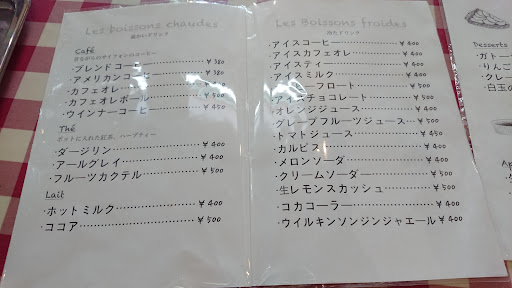 Les boissons chaudes
温かいドリンク
Café
昔ながらのサイフォンのコーヒー
・ブレンドコーヒー ¥380
・アメリカンコーヒ ¥380
・カフェオレ ¥400
・カフェオレボール ¥500
・ウインナーコーヒ ¥500
Thé
ポットに入れた紅茶、ハーブティー
・ダージリン ¥400
・アールグレイ ¥400
・フルーツカクテル ¥500
Lait
・ホットミルク ¥400
・ココア ¥500
Les Boissons froides
冷たドリンク
・アイスコーヒ ¥400
・アイスカフェオレ ¥400
・アイスティ ¥400
・アイスミルク ¥400
フロート ¥500
・アイスチョコレート ¥500
・オレンジジュース ¥400
・グレープフルーツジュース ¥500
・トマトジュース ¥450
・カルピス ¥400
・メロンソーダ ¥400
・クリームソーダー ¥500
・生レモンスカッシュ ¥500
・コカコーラー ¥400
・ウイルキンソンジンジャエール ¥400
Desserts
・ガトー
・りんご
・クレー
・白玉の